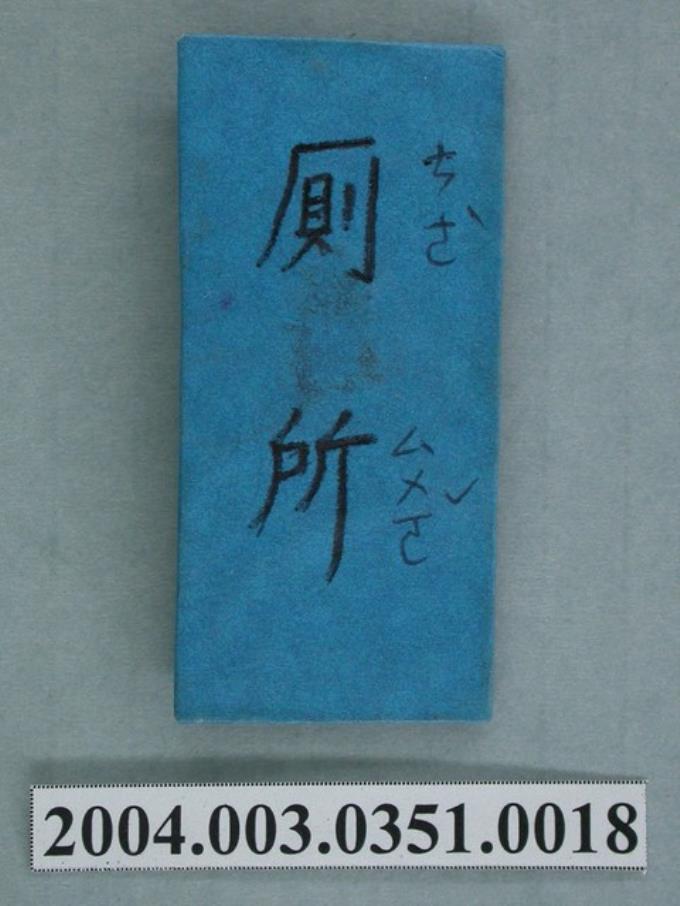 廁 ㄘㄜˋ
所 ㄙㄨㄛˇ
2004.003.0351.0018